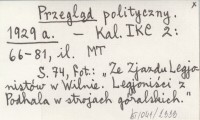 Przegląd polityczny.
1929 a. — Kal. IKC 2:
66-81, il. MT
S. 74, fot.: „Ze Zjazdu Legjo-
nistów w Wilnie. Legjoniści z
Podhala w strojach góralskich.